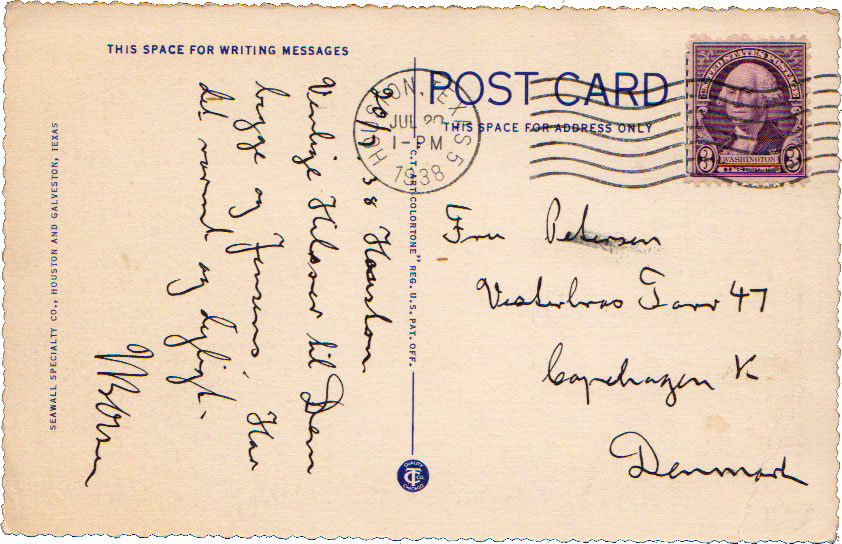 THIS SPACE FOR WRITING MESSAGES
POST CARD
THIS SPACE FOR ADDRESS ONLY
HOUSTON, TEXAS 5
JUL 20
1-PM
1938
UNITED STATES POSTAGE
3 WASHINGTON 3
20/7 38 Houston
Venlige Hilsner til Dem
begge og Jensens. Her
det varmt og dejligt.
Fru Petersen
Vesterbros Torv 47
Copehagen V.
Denmark
SEAWALL SPECIALTY CO., HOUSTON AND GALVESTON, TEXAS
C.T. ART-COLORTONE" REG. U.S. PAT. OFF.
QUALITY
CT CO
CHICAGO